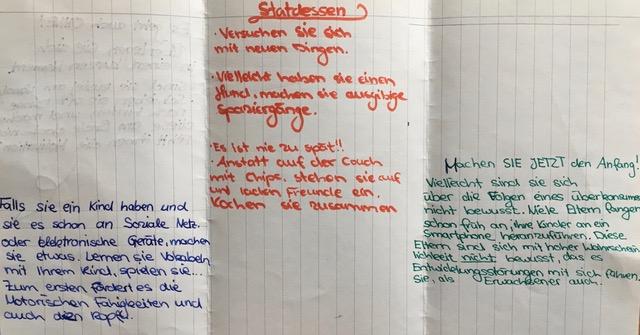 Falls sie ein Kind haben und
sie es schon an Soziale Netz.
oder elektronische Geräte, machen
sie etwas. Lernen sie Vokabeln
mit Ihrem Kind, spielen sie...
Zum ersten fördert es die
Motorischen Fähigkeiten und
auch den Kopf.
Statdessen
· Versuchen sie sich
mit neuen Dingen.
· Vielleicht haben sie einen
Hund, machen sie ausgibige
Spaziergänge.
· Es ist nie zu spät!!
· Anstatt auf der Couch
mit Chips. stehen sie auf
und laden Freunde ein.
Kochen sie zusammen
Machen SIE JETZT den Anfang!
Vielleicht sind sie sich
über die Folgen eines überkonsums
nicht bewusst. Viele Eltern fangen
schon früh an, ihre Kinder an ein
Smartphone heranzuführen. Diese
Eltern sind sich mit hoher Wahrschein-
lichkeit nicht bewusst, das es
Entwicklungsstörungen mit sich führen.
Sie, als Erwachsener auch.